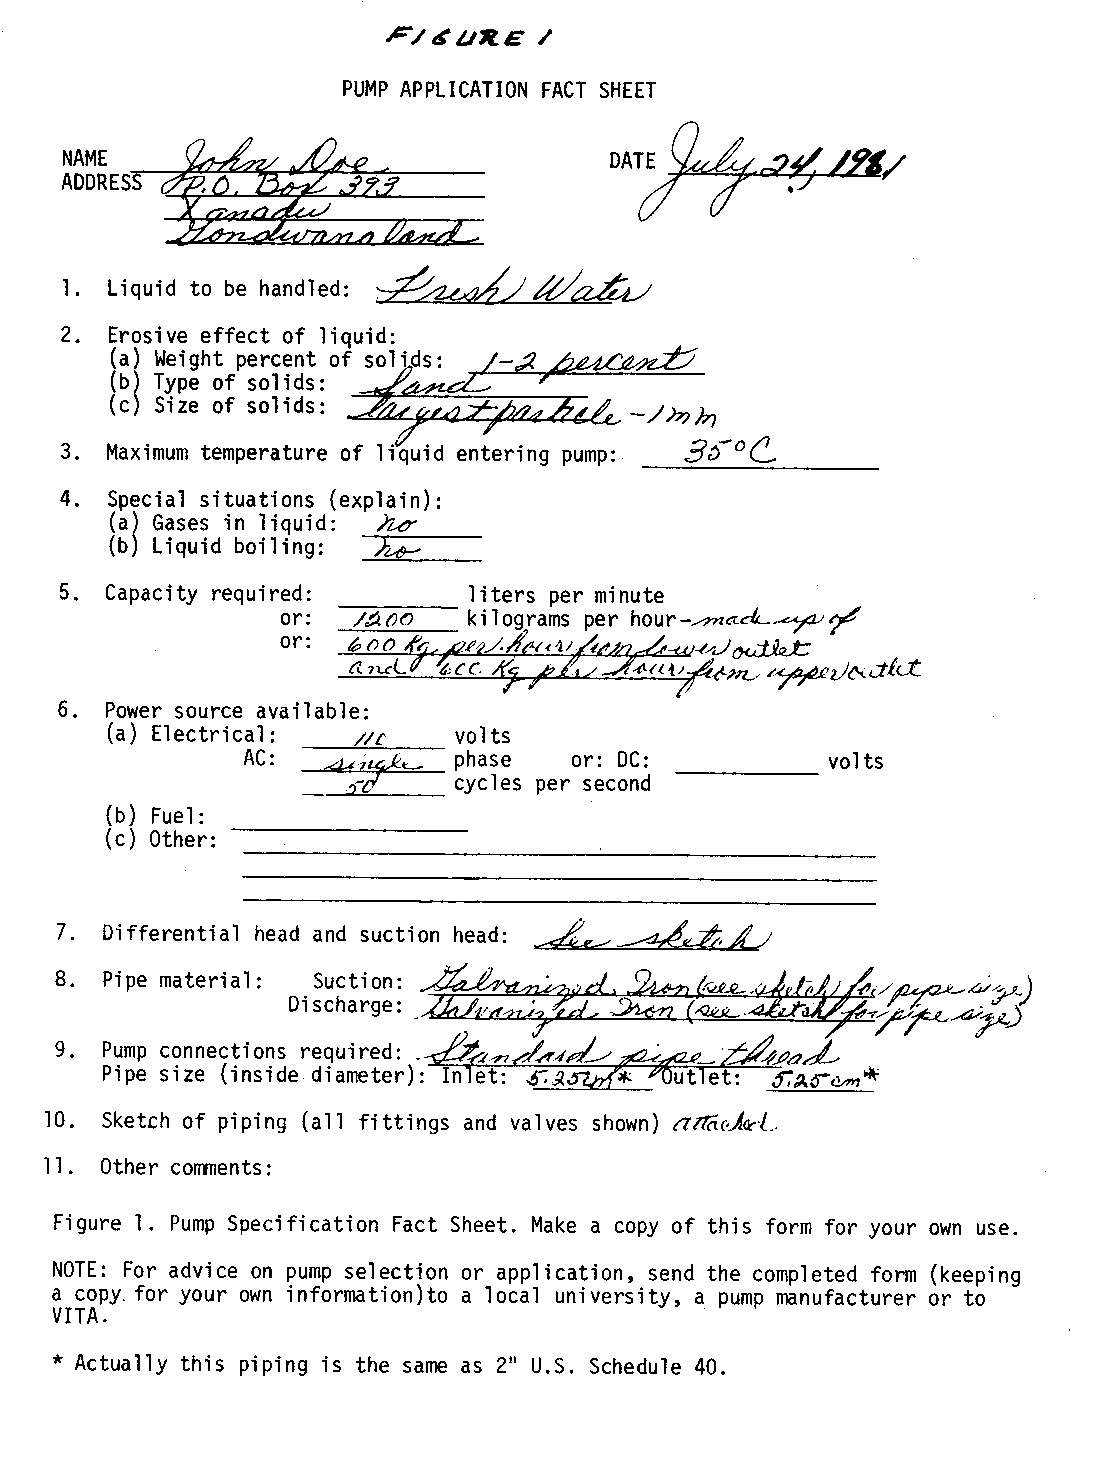 FIGURE 1
PUMP APPLICATION FACT SHEET
NAME John Doe DATE July 24, 1981
ADDRESS P.O. Box 393
Xanadu
Gondwanaland
1. Liquid to be handled: Fresh Water
2. Erosive effect of liquid:
(a) Weight percent of solids: 1-2 percent
(b) Type of solids: Sand
(c) Size of solids: largest particle - 1mm
3. Maximum temperature of liquid entering pump: 35°C
4. Special situations (explain):
(a) Gases in liquid: no
(b) Liquid boiling: no
5. Capacity required: liters per minute
or: 1200 kilograms per hour - made up of
or: 600 Kg. per hour from lower outlet
and 600 Kg per hour from upper outlet
6. Power source available:
(a) Electrical: 110 volts
AC: single phase or: DC: volts
50 cycles per second
(b) Fuel:
(c) Other:
7. Differential head and suction head: See sketch
8. Pipe material: Suction: Galvanized Iron (see sketch for pipe size)
Discharge: Galvanized Iron (see sketch for pipe size)
9. Pump connections required: Standard pipe thread
Pipe size (inside diameter): Inlet: 5.25cm* Outlet: 5.25cm*
10. Sketch of piping (all fittings and valves shown) attached.
11. Other comments:
Figure 1. Pump Specification Fact Sheet. Make a copy of this form for your own use.
NOTE: For advice on pump selection or application, send the completed form (keeping
a copy for your own information)to a local university, a pump manufacturer or to
VITA.
* Actually this piping is the same as 2" U.S. Schedule 40.